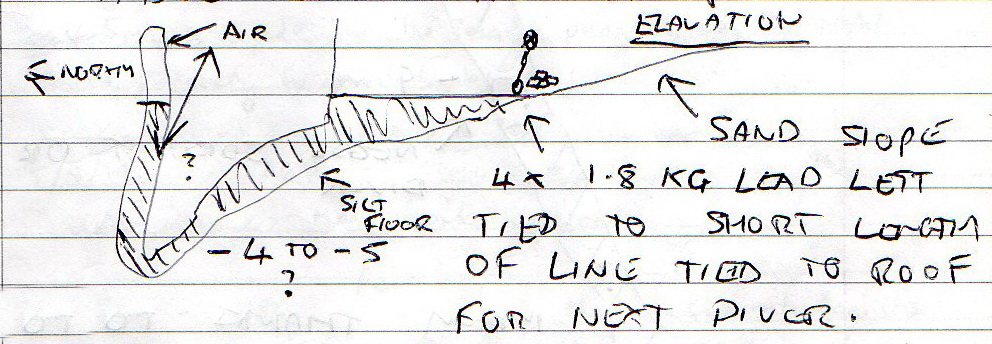 AIR
ELAVATION
NORTH
?
SILT
FLOOR
- 4 TO - 5
?
SAND SLOPE
4 x 1.8 KG LEAD LEFT
TIED TO SHORT LENGTH
OF LINE TIED TO ROOF
FOR NEXT DIVER.